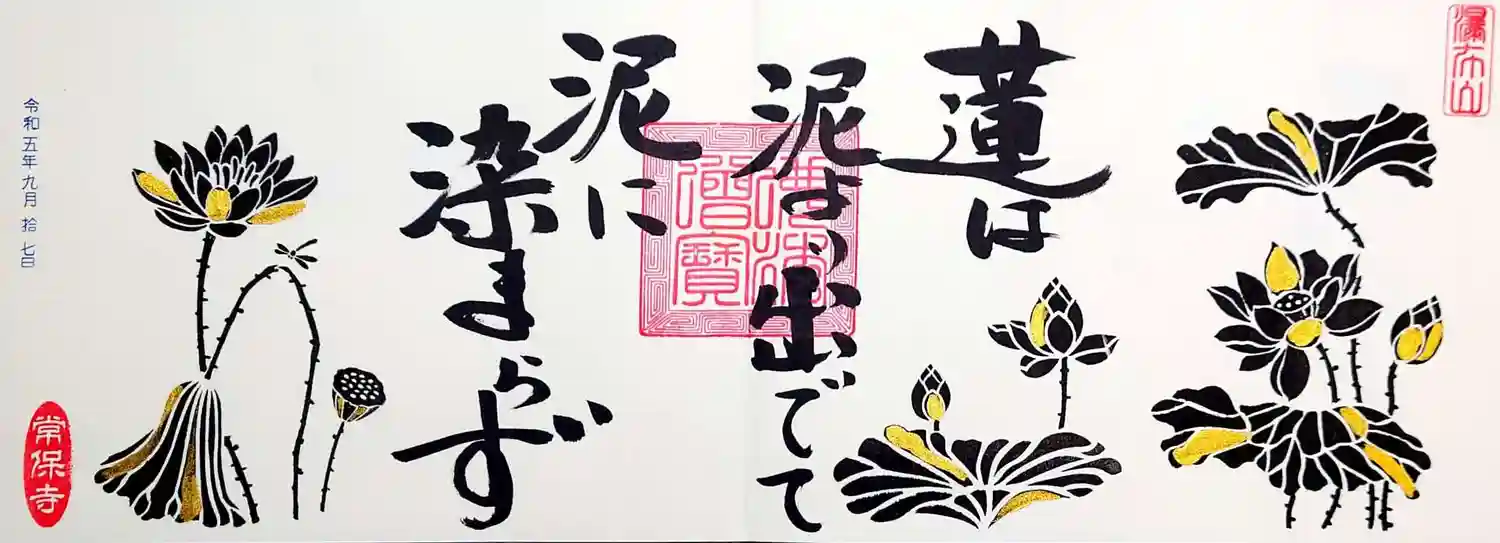 瀑布山
蓮は
泥より出でて
泥に
染まらず
佛法僧寳
令和五年九月拾七日
常保寺